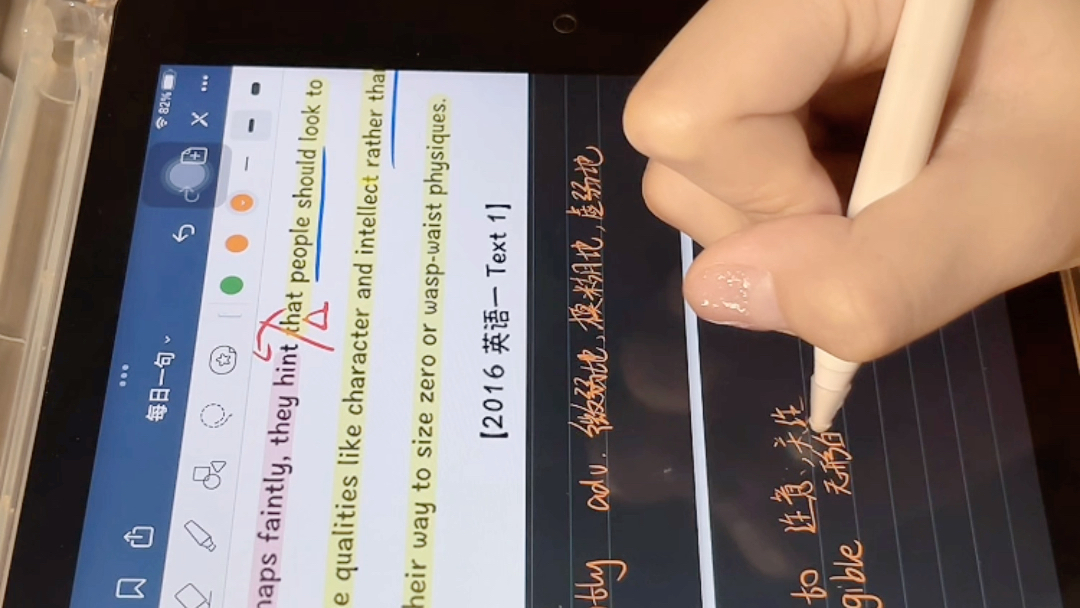 82%
每日一句
haps faintly, they hint that people should look to
e qualities like character and intellect rather tha
heir way to size zero or wasp-waist physiques.
[2016 英语一 Text 1]
ntly adv. 微弱地,模糊地,虚弱地
to 注意、关注
gible 无形的